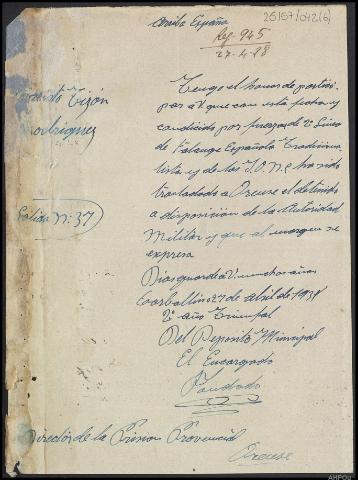 Arriba España
25157/042(6)
Ref- 945
27-4-38
Tengo el honor de partici-
par a V que con esta fecha y
condicido por fuerzas de 2ª Linea
de Falange Española Tradiciona
lista y de las J.O.N.S ha sido
trasladado a Orense el detenido
a disposición de la Autoridad
Militar y que al margen se
expresa
Tizón
Rodriguez
Salida Nº 37
Dios guarde a V. muchos años
Carballino 27 de abril de 1938
2º año Triunfal
Del Deposito Municipal
El Encargado
Director de la Prision Provincial
Orense
AHPOu